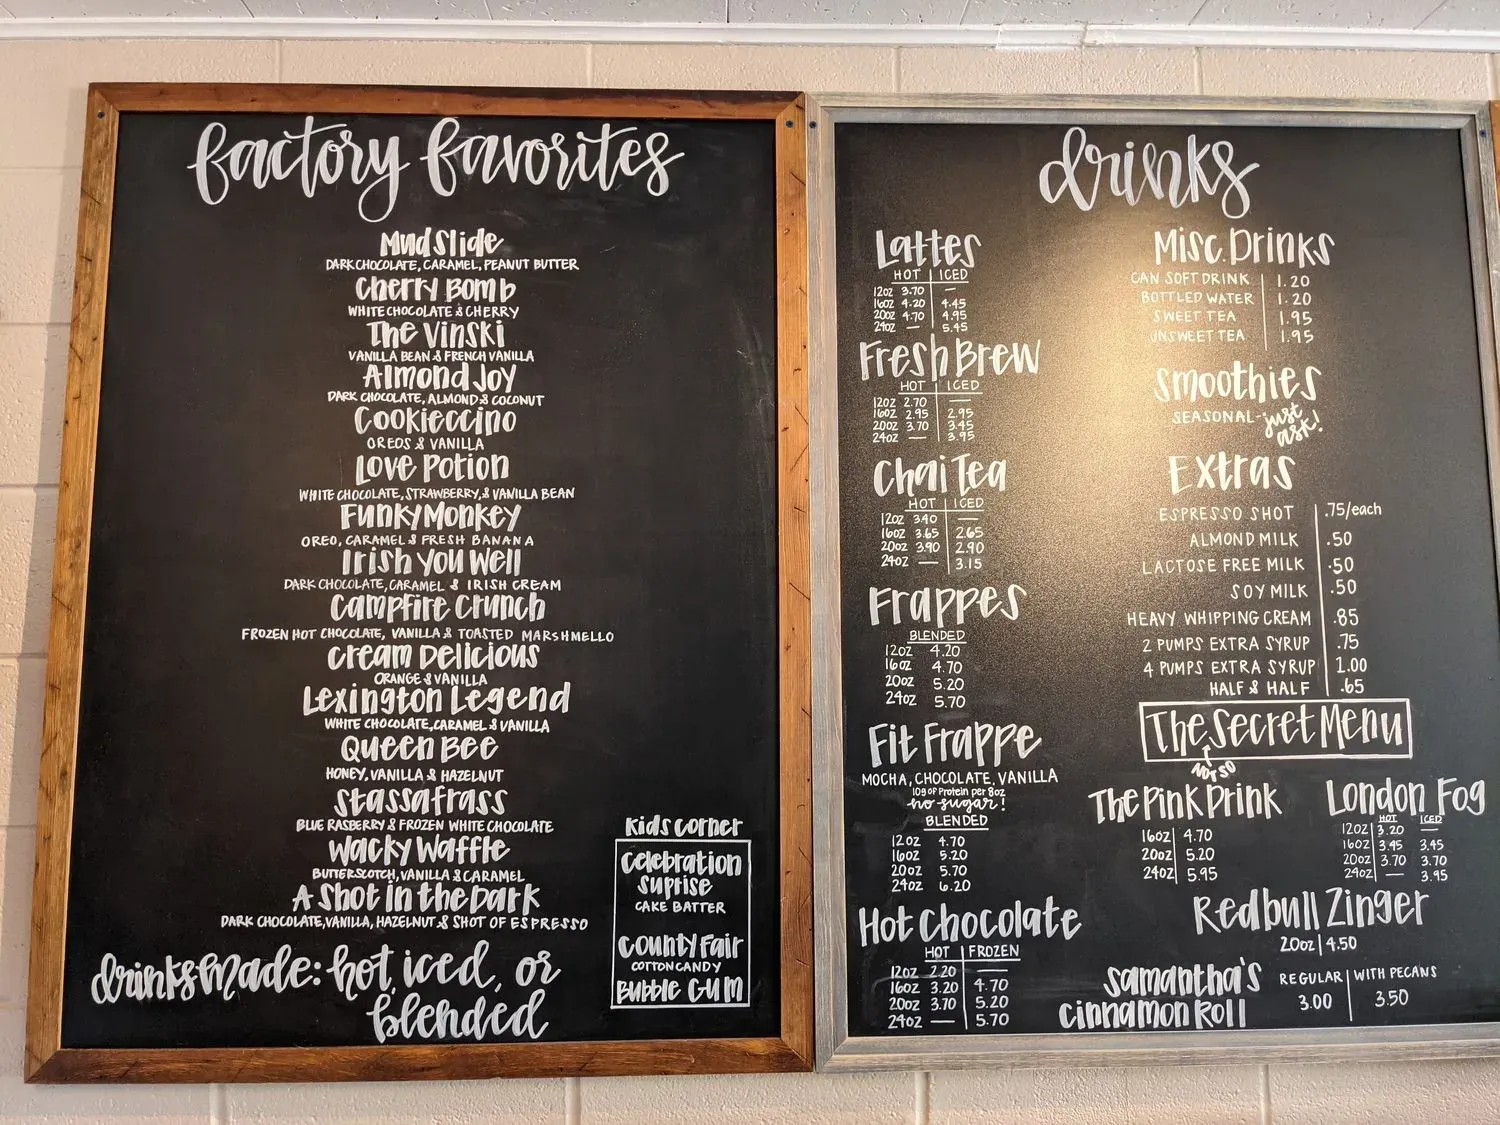 factory favorites
Mudslide
DARK CHOCOLATE, CARAMEL, PEANUT BUTTER
Cherry Bomb
WHITE CHOCOLATE & CHERRY
The Vinski
VANILLA BEAN & FRENCH VANILLA
Almond Joy
DARK CHOCOLATE, ALMOND & COCONUT
Cookieccino
OREOS & VANILLA
Love Potion
WHITE CHOCOLATE, STRAWBERRY, & VANILLA BEAN
Funky Monkey
OREO, CARAMEL & FRESH BANANA
Irish You Well
DARK CHOCOLATE, CARAMEL & IRISH CREAM
Campfire Crunch
FROZEN HOT CHOCOLATE, VANILLA & TOASTED MARSHMELLO
Cream Delicious
ORANGE & VANILLA
Lexington Legend
WHITE CHOCOLATE, CARAMEL & VANILLA
Queen Bee
HONEY, VANILLA & HAZELNUT
Stassafrass
BLUE RASBERRY & FROZEN WHITE CHOCOLATE
Wacky Waffle
BUTTERSCOTCH, VANILLA & CARAMEL
A Shot in the Dark
DARK CHOCOLATE, VANILLA, HAZELNUT & SHOT OF ESPRESSO
drinks made: hot, iced, or
blended
Kids Corner
Celebration
Suprise
CAKE BATTER
County Fair
COTTON CANDY
Bubble Gum
drinks
Lattes
HOT ICED
12oz 3.70 —
16oz 4.20 4.45
20oz 4.70 4.95
24oz — 5.45
Fresh Brew
HOT ICED
12oz 2.70 —
16oz 2.95 2.95
20oz 3.70 3.45
24oz — 3.95
Chai Tea
HOT ICED
12oz 3.40 —
16oz 3.65 2.65
20oz 3.90 2.90
24oz — 3.15
Frappes
BLENDED
12oz 4.20
16oz 4.70
20oz 5.20
24oz 5.70
Fit Frappe
MOCHA, CHOCOLATE, VANILLA
10g of Protein per 8oz
no sugar!
BLENDED
12oz 4.70
16oz 5.20
20oz 5.70
24oz 6.20
Hot Chocolate
HOT FROZEN
12oz 2.20 —
16oz 3.20 4.70
20oz 3.70 5.20
24oz — 5.70
Misc. Drinks
CAN SOFT DRINK 1.20
BOTTLED WATER 1.20
SWEET TEA 1.95
UNSWEET TEA 1.95
Smoothies
SEASONAL - just
ask!
Extras
ESPRESSO SHOT .75/each
ALMOND MILK .50
LACTOSE FREE MILK .50
SOY MILK .50
HEAVY WHIPPING CREAM .85
2 PUMPS EXTRA SYRUP .75
4 PUMPS EXTRA SYRUP 1.00
HALF & HALF .65
The Secret Menu
NOT SO
The Pink Drink
16oz 4.70
20oz 5.20
24oz 5.95
London Fog
HOT ICED
12oz 3.20 —
16oz 3.45 3.45
20oz 3.70 3.70
24oz — 3.95
Redbull Zinger
20oz 4.50
Samantha's
Cinnamon Roll
REGULAR WITH PECANS
3.00 3.50